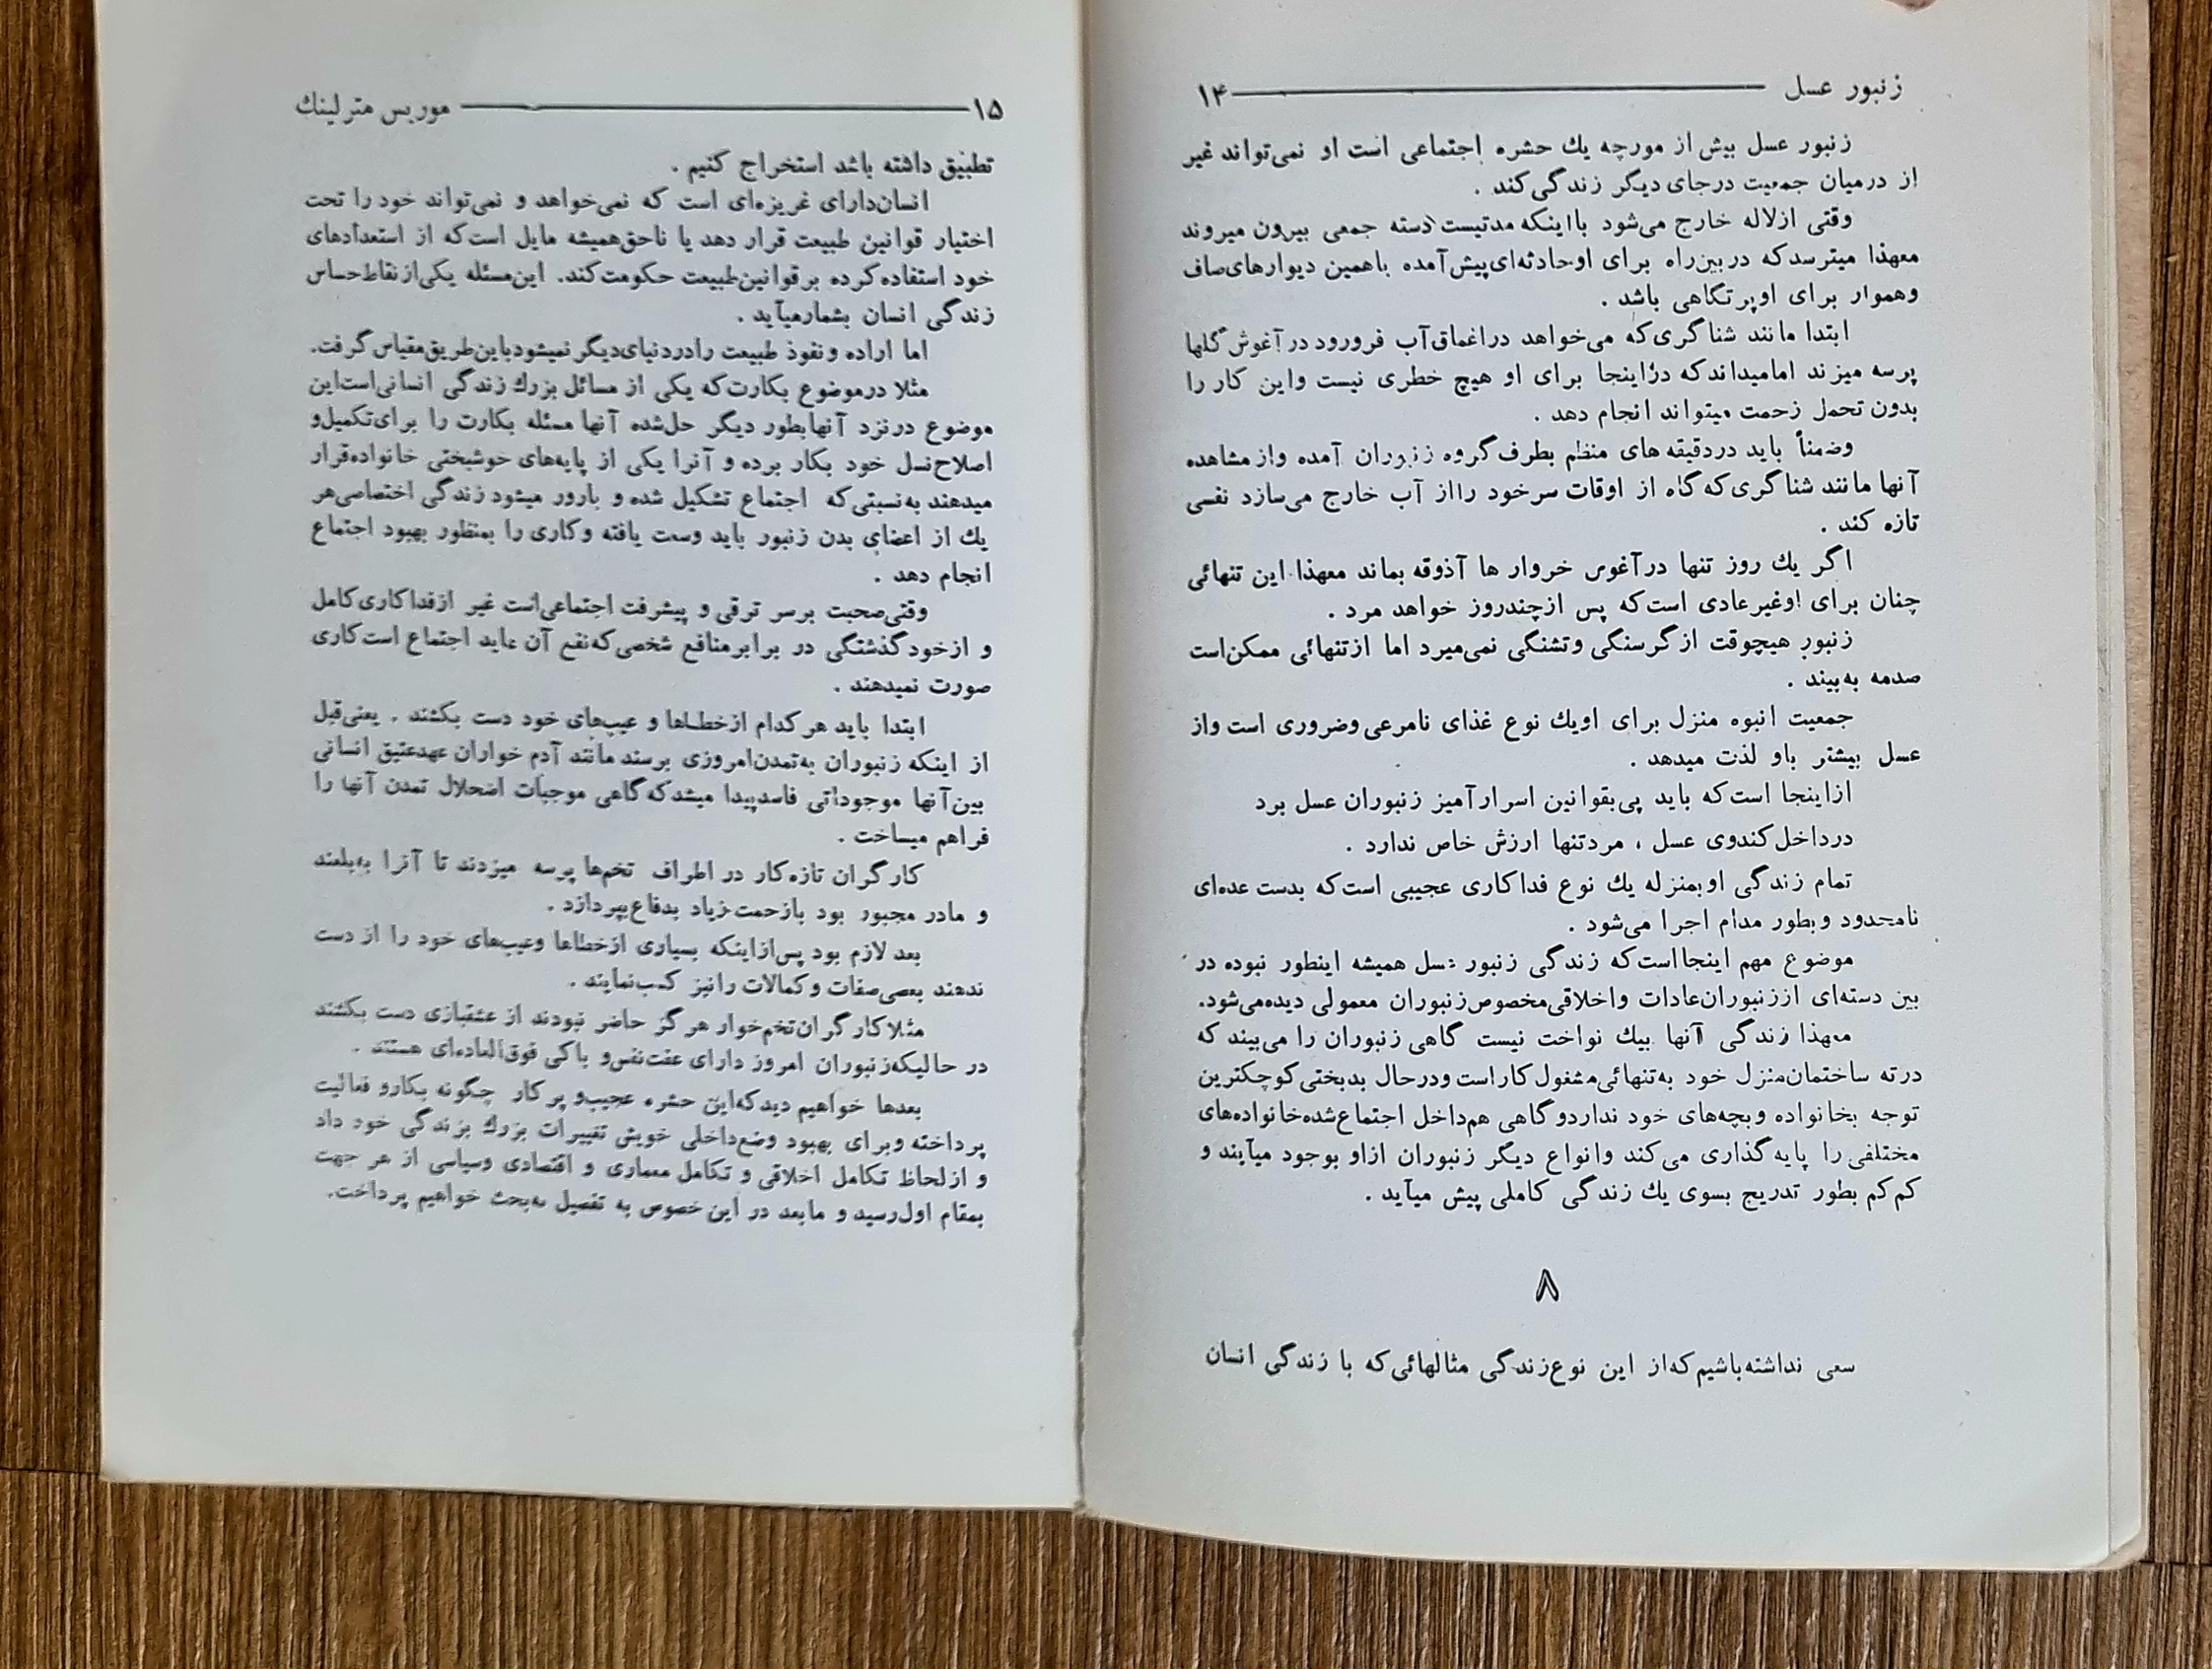 زنبور عسل ۱۴
زنبور عسل بیش از مورچه یك حشره اجتماعی است او نمی‌تواند غیر
از درمیان جمعیت درجای دیگر زندگی‌کند .
وقتی ازلاله خارج می‌شود بااینکه مدتیست دسته جمعی بیرون میروند
معهذا میترسدکه دربین‌راه برای اوحادثه‌ای‌پیش‌آمده باهمین دیوارهای‌صاف
وهموار برای اوپرتگاهی باشد .
ابتدا مانند شناگری‌که می‌خواهد دراعماق‌آب فرورود درآغوش گلها
پرسه میزند امامیداندکه دراینجا برای او هیچ خطری نیست واین کار را
بدون تحمل زحمت میتواند انجام دهد .
وضمناً باید دردقیقه های منظم بطرف‌گروه زنبوران آمده واز مشاهده
آنها مانند شناگری‌که‌گاه از اوقات سرخود رااز آب خارج می‌سازد نفسی
تازه کند .
اگر یك روز تنها درآغوس خروار ها آذوقه بماند معهذا این تنهائی
چنان برای اوغیرعادی است‌که پس ازچندروز خواهد مرد .
زنبور هیچوقت ازگرسنگی وتشنگی نمی‌میرد اما ازتنهائی ممکن‌است
صدمه به‌بیند .
جمعیت انبوه منزل برای اویك نوع غذای نامرعی‌وضروری است واز
عسل بیشتر باو لذت میدهد .
ازاینجا است‌که باید پی‌بقوانین اسرارآمیز زنبوران عسل برد
درداخل‌کندوی عسل ، مردتنها ارزش خاص ندارد .
تمام زندگی اوبمنزله یك نوع فداکاری عجیبی است‌که بدست عده‌ای
نامحدود وبطور مدام اجرا می‌شود .
موضوع مهم اینجااست‌که زندگی زنبور عسل همیشه اینطور نبوده در
بین دسته‌ای اززنبوران‌عادات واخلاقی‌مخصوص‌زنبوران معمولی دیده‌می‌شود.
معهذا زندگی آنها بیك نواخت نیست گاهی زنبوران را می‌بیند که
درته ساختمان‌منزل خود به‌تنهائی‌مشغول‌کاراست ودرحال بدبختی‌کوچکترین
توجه بخانواده وبچه‌های خود نداردوگاهی هم‌داخل اجتماع‌شده‌خانواده‌های
مختلفی را پایه‌گذاری می‌کند وانواع دیگر زنبوران ازاو بوجود میآیند و
کم‌کم بطور تدریج بسوی یك زندگی کاملی پیش میآید .
۸
سعی نداشته‌باشیم‌که‌از این نوع‌زندگی مثالهائی‌که با زندگی انسان
۱۵ موریس مترلینك
تطبیق داشته باشد استخراج کنیم .
انسان‌دارای غریزه‌ای است که نمی‌خواهد و نمی‌تواند خود را تحت
اختیار قوانین طبیعت قرار دهد یا ناحق‌همیشه مایل است‌که از استعدادهای
خود استفاده‌کرده برقوانین‌طبیعت حکومت‌کند. این‌مسئله یکی‌ازنقاط‌حساس
زندگی انسان بشمارمیآید .
اما اراده ونفوذ طبیعت رادردنیای‌دیگر نمیشودباین‌طریق‌مقیاس‌گرفت.
مثلا درموضوع بکارت‌که یکی از مسائل بزرك زندگی انسانی‌است‌این
موضوع درنزد آنهابطور دیگر حل‌شده آنها مسئله بکارت را برای‌تکمیل‌و
اصلاح‌نسل خود بکار برده و آنرا یکی از پایه‌های خوشبختی خانواده‌قرار
میدهند به‌نسبتی‌که اجتماع تشکیل شده و بارور میشود زندگی اختصاصی‌هر
یك از اعضای بدن زنبور باید وسعت یافته وکاری را بمنظور بهبود اجتماع
انجام دهد .
وقتی‌صحبت برسر ترقی و پیشرفت اجتماعی‌است غیر ازفداکاری‌کامل
و ازخودگذشتگی در برابرمنافع شخصی‌که‌نفع آن عاید اجتماع است‌کاری
صورت نمیدهند .
ابتدا باید هرکدام ازخطاها و عیب‌های خود دست بکشند . یعنی‌قبل
از اینکه زنبوران به‌تمدن‌امروزی برسند مانند آدم خواران عهدعتیق انسانی
بین‌آنها موجوداتی فاسدپیدا میشدکه‌گاهی موجبات اضحلال تمدن آنها را
فراهم میساخت .
کارگران تازه‌کار در اطراف تخم‌ها پرسه میزدند تا آنرا به‌بلعند
و مادر مجبور بود بازحمت‌زیاد بدفاع‌بپردازد .
بعد لازم بود پس‌ازاینکه بسیاری ازخطاها وعیب‌های خود را از دست
ندهند بعصی‌صفات وکمالات رانیز کسب‌نمایند .
مثلاکارگران‌تخم‌خوار هرگز حاضر نبودند از عشقبازی دست بکشند
در حالیکه‌زنبوران امروز دارای عفت‌نفس‌و پاکی فوق‌العاده‌ای هستند .
بعدها خواهیم دیدکه‌این حشره عجیب‌و پرکار چگونه بکارو فعالیت
پرداخته وبرای بهبود وضع‌داخلی خویش تغییرات بزرك بزندگی خود داد
و ازلحاظ تکامل اخلاقی و تکامل معماری و اقتصادی وسیاسی از هر جهت
بمقام اول‌رسید و مابعد در این‌خصوص به تفصیل به‌بحث خواهیم پرداخت.